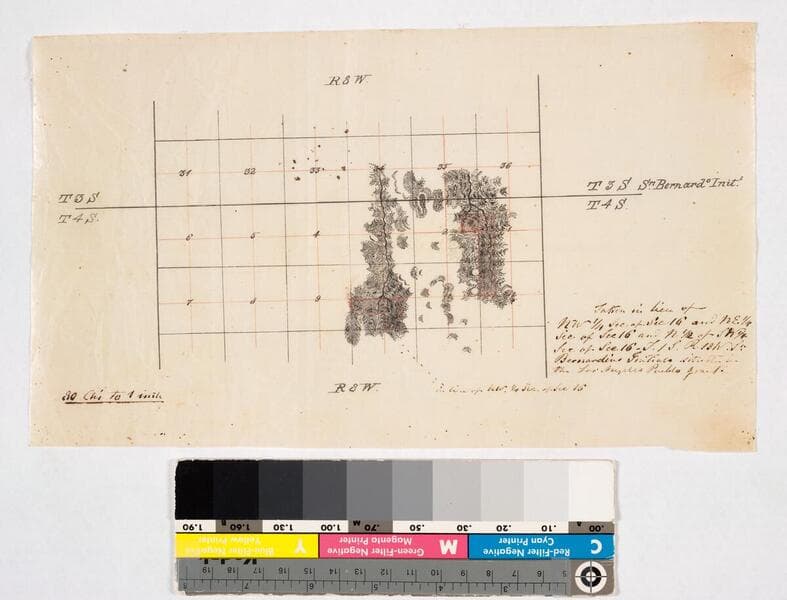 R 8 W.
31 32 33 35 36
T 3 S
T 3 S Sn Bernardo Init.l
T 4 S.
T 4 S.
6 5 4
7 8 9
Taken in lieu of
N.W 1/4 Sec of Sec 16 and N.E 1/4
Sec of Sec 16 and N 1/2 of S.W 1/4
Sec of Sec 16 T. 1 S. R. 13 W. Sn
Bernardino Initial situate in
the Los Angeles Pueblo grant.
80 Chs to 1 inch
R 8 W.
In lieu of N.W. 1/4 Sec. of Sec 16
1.90 B 1.60 1.30 1.00 M .70 .50 .30 .20 .10 A .00
Blue-Filter Negative
Yellow Printer
Y
Green-Filter Negative
Magenta Printer
M
Red-Filter Negative
Cyan Printer
C
Kodak
19 18 17 16 15 14 13 12 11 10 9 8 7 6 5
7 6 5 4 3